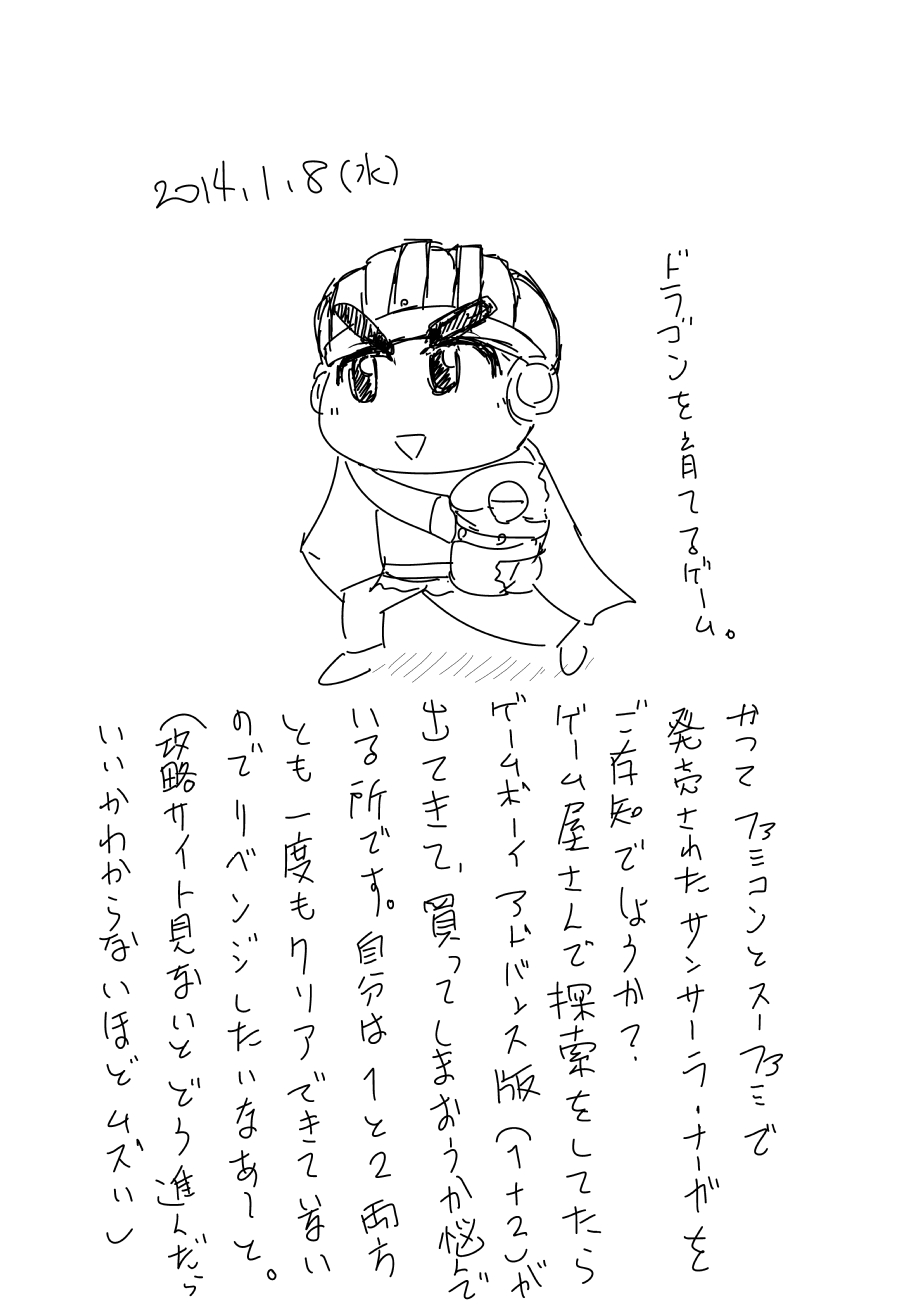 2014.1.8(水)
ドラゴンを育てるゲーム。
かつてファミコンとスーファミで
発売されたサンサーラ・ナーガを
ご存知でしょうか?
ゲーム屋さんで探索をしてたら
ゲームボーイアドバンス版(1+2)が
出てきて、買ってしまおうか悩んで
いる所です。自分は1と2両方
とも一度もクリアできていない
のでリベンジしたいなあ〜と。
(攻略サイト見ないとどう進んだら
いいかわからないほどムズい)